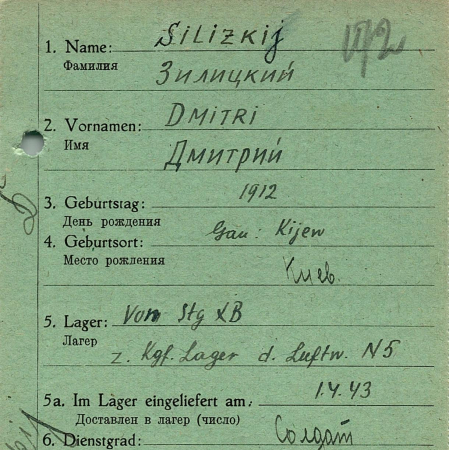 1. Name: Silizkij
Фамилия Зилицкий
2. Vornamen: Dmitri
Имя Дмитрий
3. Geburtstag: 1912
День рождения
4. Geburtsort: Gau: Kijew
Место рождения Киев.
5. Lager: Von Stg XB
Лагер z. Kgf. Lager d. Luftw. N5
5a. Im Lager eingeliefert am: 1.4.43
Доставлен в лагер (число)
6. Dienstgrad: Солдат